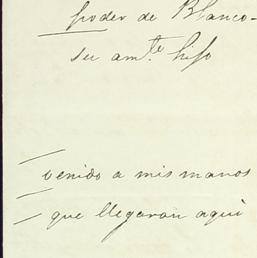 poder de Blanco-
su am.te hijo
venido a mis manos
que llegaron aquì